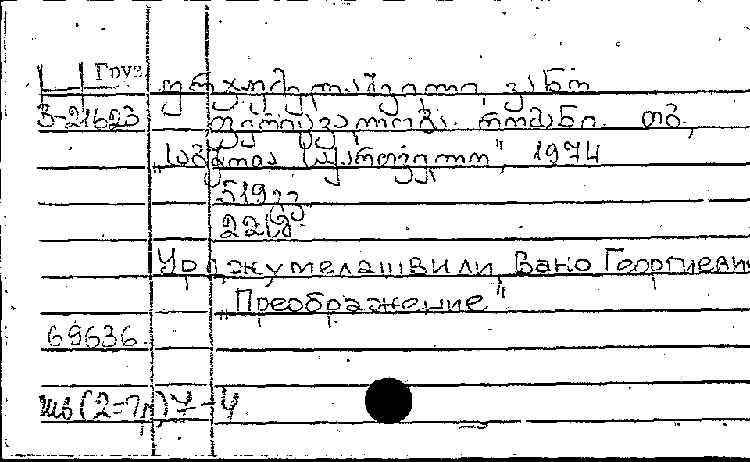 Груз
ურჯუმელაშვილი, ვანო
3-21623 ფერიცვალობა. რომანი. თბ.,
„საბჭოთა საქართველო", 1974
519 გვ.
22 სმ.
Урджумелашвили, Вано Георгиевич
„Преображение"
69636.
шв(2=Гр)7-4